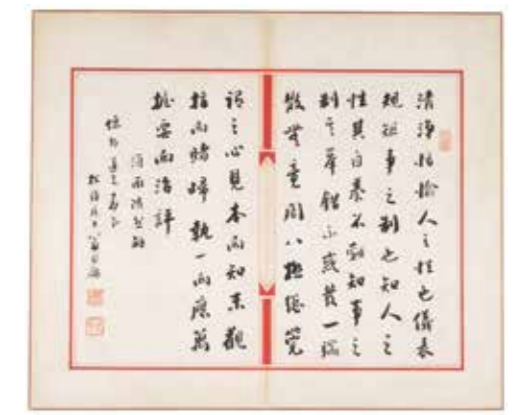 清淨恬愉人之性也儀表
規矩事之制也知人之
性其自養不勃知事之
制之舉錯不惑發一端
散無竟周八極總筦
謂之心見本而知末觀
指而睹歸執一而應萬
握要而治詳
淮南鴻烈解
松禪居士翁同龢